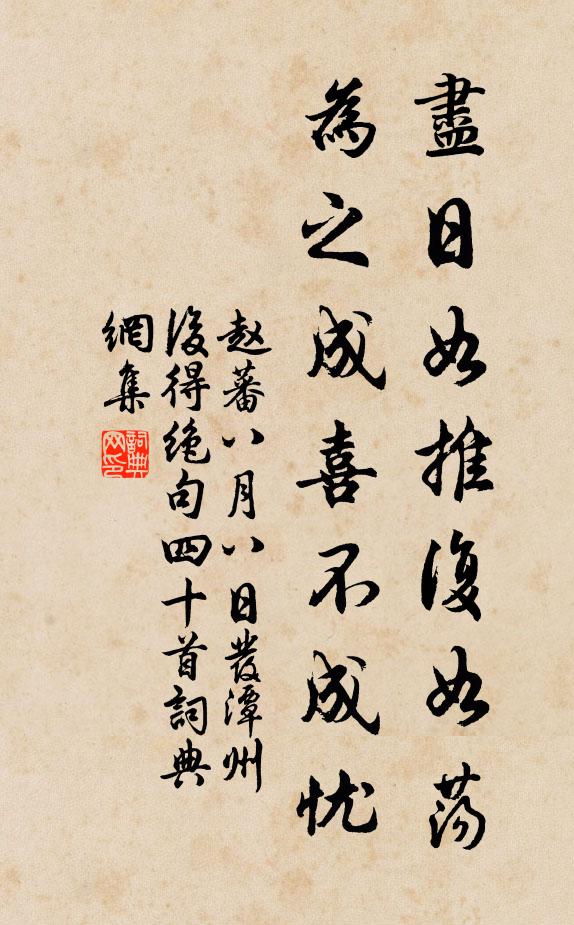 盡日如推復如蕩
為之成喜不成忧
赵蕃八月八日發潭州
後得绝句四十首詞典
網集
詞典
网印